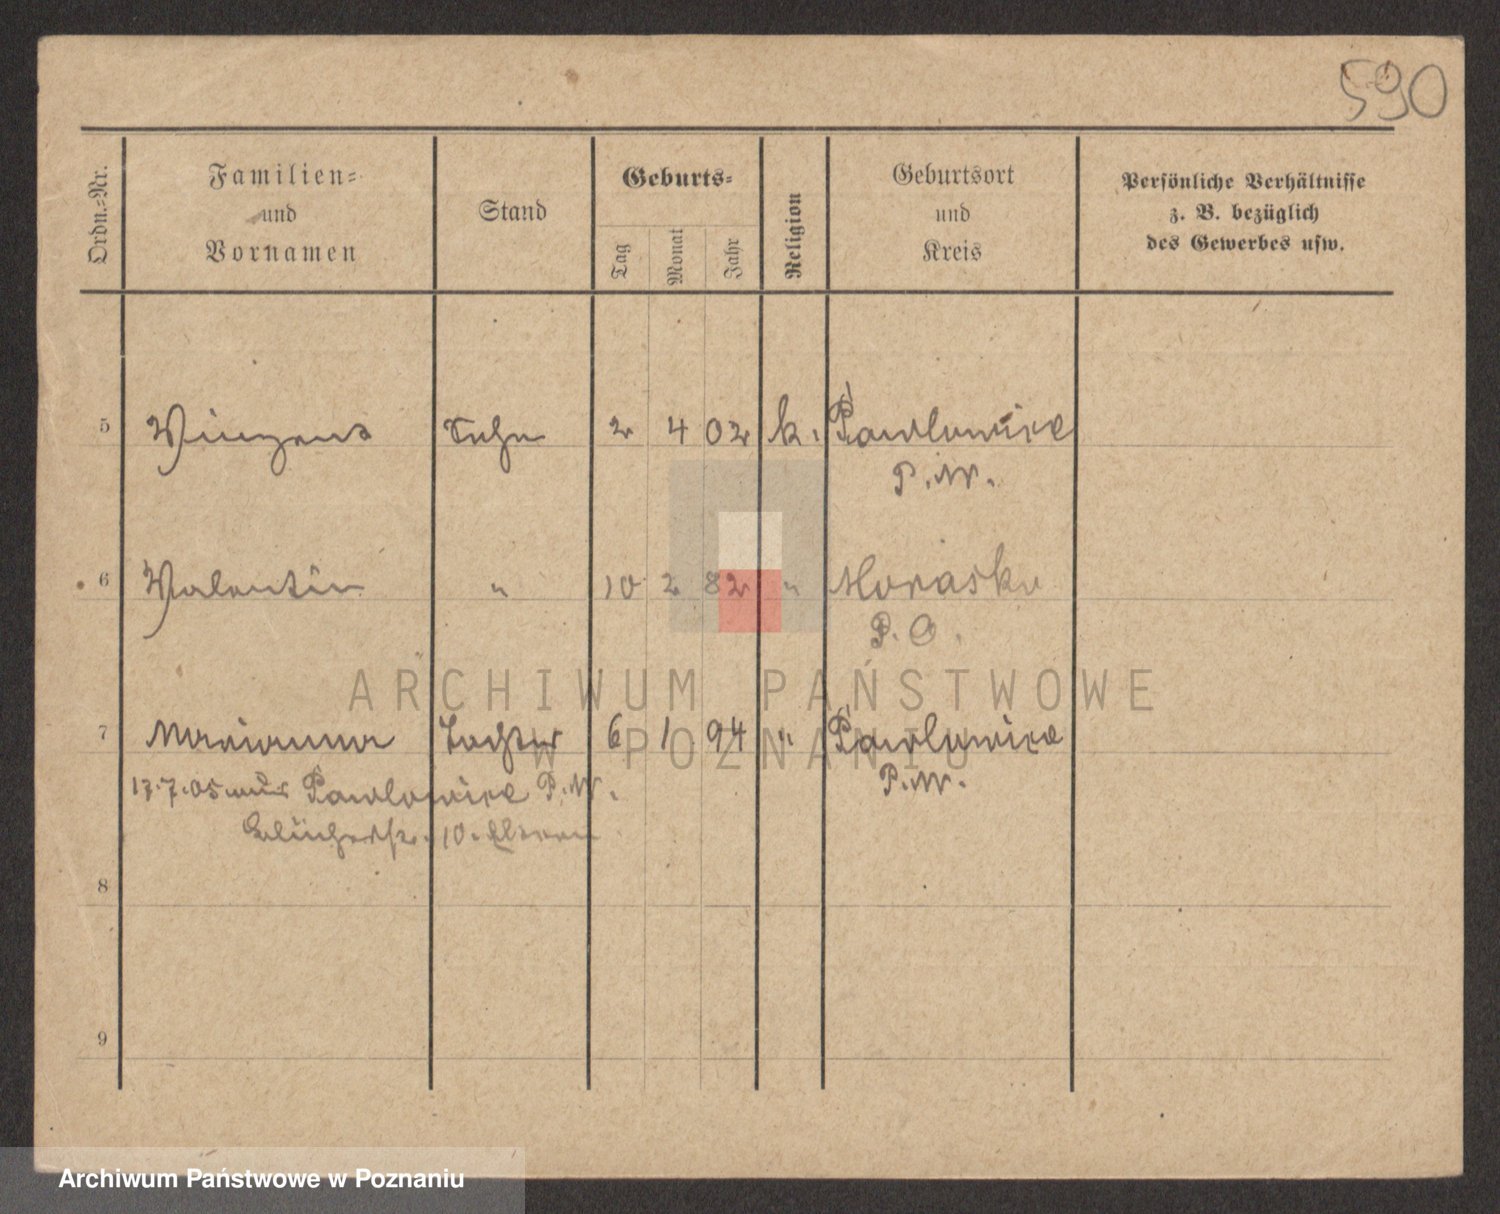 590
Ordn.-Nr.
Familien-
und
Vornamen
Stand
Geburts-
Tag
Monat
Jahr
Religion
Geburtsort
und
Kreis
Persönliche Verhältnisse
z. B. bezüglich
des Gewerbes usw.
5 Vinzens Sohn 2 4 02 k. Pawlowice
P. W.
6 Valentin " 10 2 82 " Morasko
P. O.
7 Marianna Tochter 6 1 94 " Pawlowice
P. W.
17.7.05 aus Pawlowice P. W.
Blücherstr. 10. Eltern
8
9
ARCHIWUM PAŃSTWOWE
W POZNANIU
Archiwum Państwowe w Poznaniu